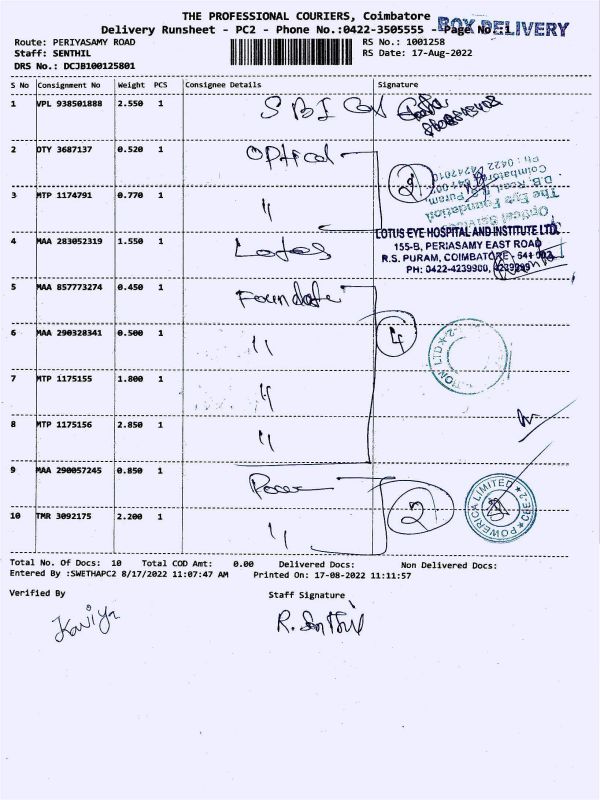 THE PROFESSIONAL COURIERS, Coimbatore
Delivery Runsheet - PC2 - Phone No.:0422-3505555 - Page No: 1
BOX DELIVERY
Route: PERIYASAMY ROAD
RS No.: 1001258
Staff: SENTHIL
RS Date: 17-Aug-2022
DRS No.: DCJB100125801
S No Consignment No Weight PCS Consignee Details Signature
1 VPL 938501888 2.550 1 SBI
2 DTY 3687137 0.520 1 Optical
2
Ph : 0422 4242010
Coimbatore
D.B. Road, R.S. Puram,
The Eye Foundation
Optical Services
3 MTP 1174791 0.770 1 "
LOTUS EYE HOSPITAL AND INSTITUTE LTD.
155-B, PERIYASAMY EAST ROAD
R.S. PURAM, COIMBATORE - 641 002
PH: 0422-4239900, 4239999
4 MAA 283052319 1.550 1 Lotus
5 MAA 857773274 0.450 1
4
6 MAA 290328341 0.500 1 "
7 MTP 1175155 1.800 1 "
8 MTP 1175156 2.850 1 "
9 MAA 290057245 0.850 1
2
POWERICA LIMITED ★ CBE-2 ★
10 TMR 3092175 2.200 1 "
Total No. Of Docs: 10 Total COD Amt: 0.00 Delivered Docs: Non Delivered Docs:
Entered By :SWETHAPC2 8/17/2022 11:07:47 AM Printed On: 17-08-2022 11:11:57
Verified By Staff Signature
Kaviya R. Senthil